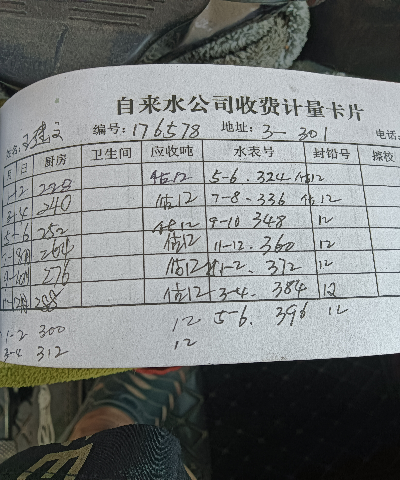 自来水公司收费计量卡片
编号:176578 地址:3-301 电话:
月 日 厨房 卫生间 应收吨 水表号 封铅号
1-2 228 估12 5-6 . 324 估12
3-4 240 估12 7-8 - 336 估12
5-6 252 估12 9-10 348 12
7-8月 264 估12 11-12 . 360 12
9-10月 276 估12 1-2 . 372 12
11-12月 288 估12 3-4 . 384 12
1-2 300 12 5-6. 396 12
3-4 312 12